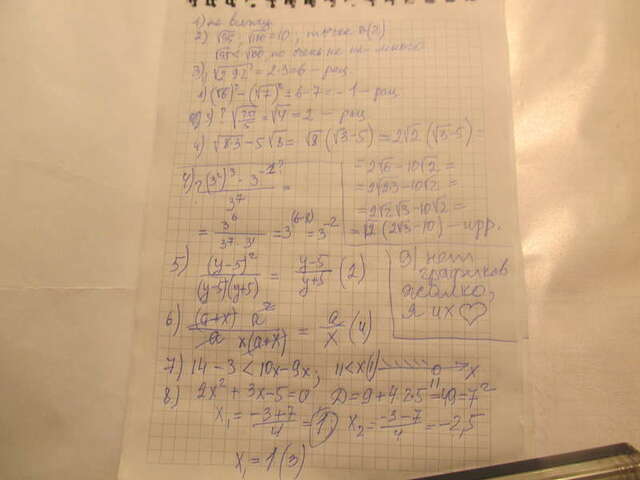 1) не вижу
2) √95; √100=10; точек D(2)
√95<√100, но очень не на-много
3) √(2·9·2)=2·3=6 – рац
(√6)² – (√7)² = 6–7 = –1 – рац
3)? √(20/5) = √4 = 2 – рац
4) √(8·3) – 5√8 = √8(√3–5) = 2√2(√3–5) =
= 2√6 – 10√2 =
= 2√(2·3) – 10√2 =
= 2√2√3 – 10√2 =
= √2(2√3–10) – ирр.
4) ?(3²)³ · 3⁻¹? / 3⁷ =
= 3⁶ / (3⁷·3¹) = 3⁽⁶⁻⁸⁾ = 3⁻²
5) (y–5)² / ((y–5)(y+5)) = (y–5)/(y+5) (2)
9) нет
графиков
жалко,
я их ♡
6) (a+x) a² / (a x(a+x)) = a/x (4)
7) 14 – 3 < 10x – 9x; 11 < x(1) 11 x
8) 2x² + 3x – 5 = 0 D = 9 + 4·2·5 = 49 = 7²
x₁ = (–3+7)/4 = 1, x₂ = (–3–7)/4 = –2,5
x₁ = 1 (3)